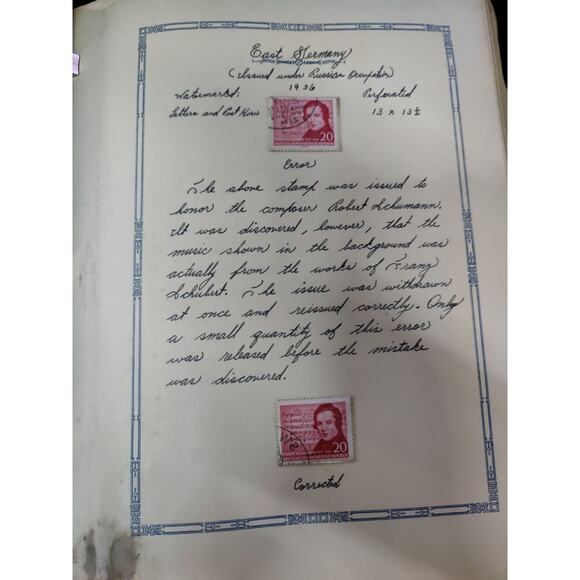 East Germany
(Issued under Russian Occupation)
1956
Watermarked:
Letters and Post Horn
Perforated
13 x 13½
20
Error
The above stamp was issued to
honor the composer Robert Schumann.
It was discovered, however, that the
music shown in the background was
actually from the works of Franz
Schubert. The issue was withdrawn
at once and reissued correctly. Only
a small quantity of this error
was released before the mistake
was discovered.
20
DEUTSCHE DEMOKRATISCHE REPUBLIK
Corrected